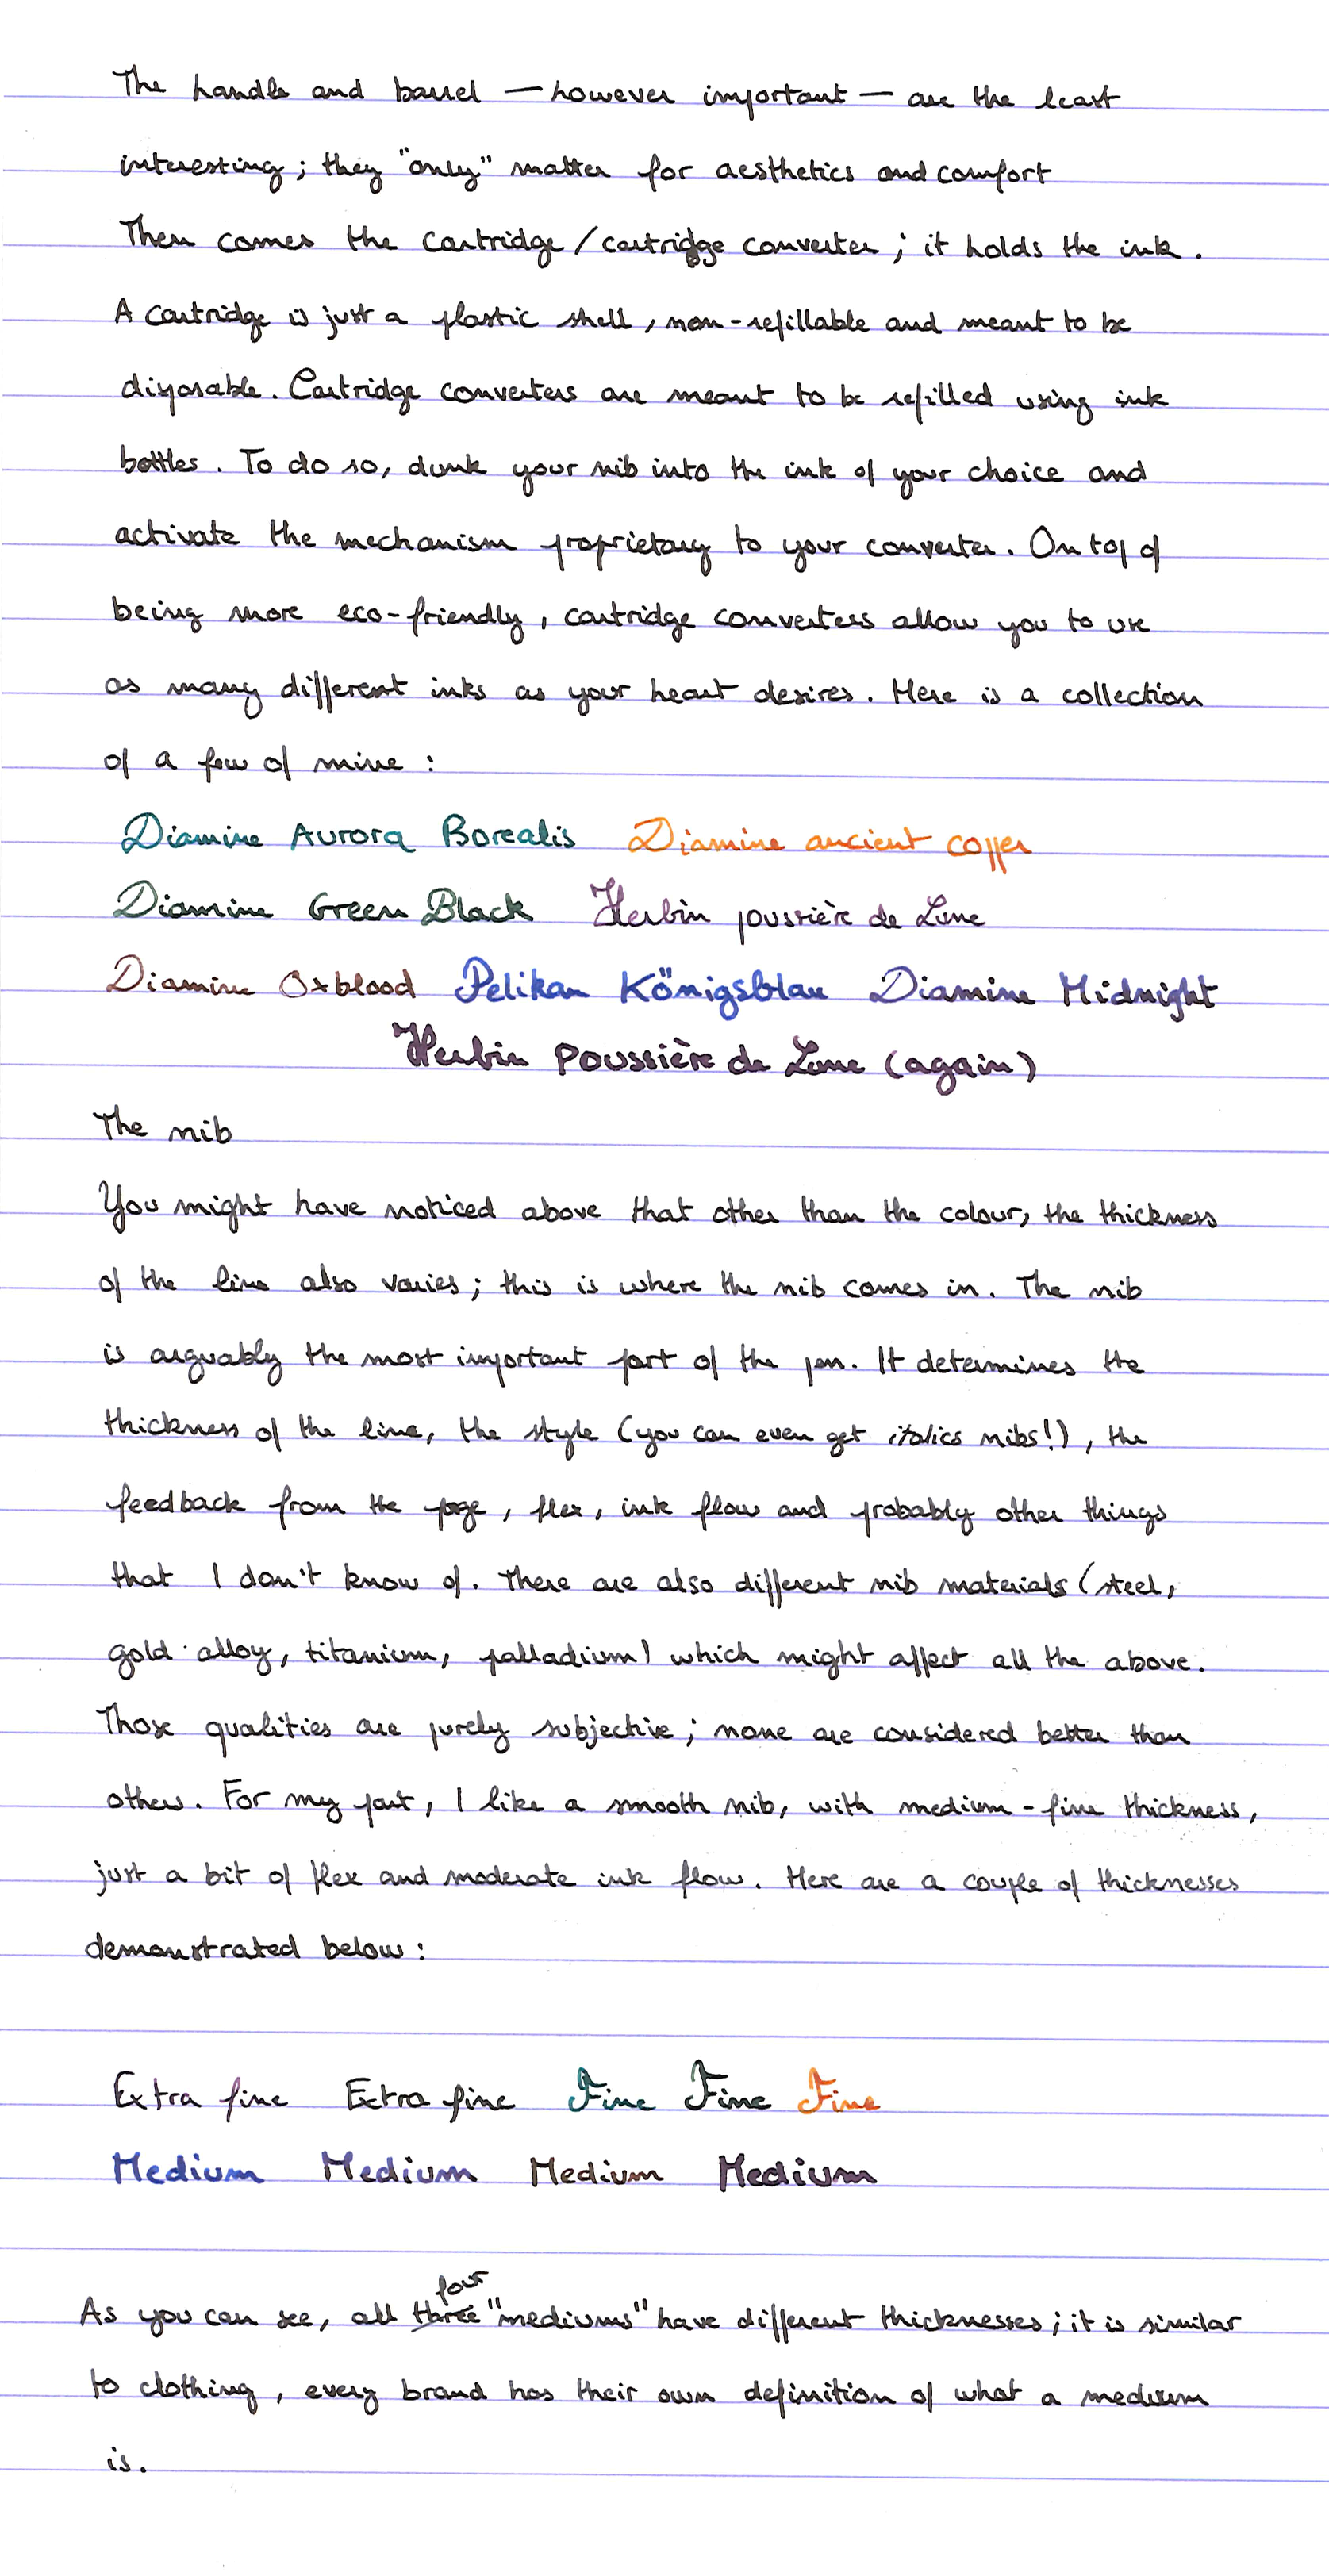 The handle and barrel — however important — are the least
interesting; they "only" matter for aesthetics and comfort
Then comes the cartridge/cartridge converter; it holds the ink.
A cartridge is just a plastic shell, non-refillable and meant to be
disposable. Cartridge converters are meant to be refilled using ink
bottles. To do so, dunk your nib into the ink of your choice and
activate the mechanism proprietary to your converter. On top of
being more eco-friendly, cartridge converters allow you to use
as many different inks as your heart desires. Here is a collection
of a few of mine :
Diamine Aurora Borealis Diamine ancient copper
Diamine Green Black Herbin poussière de Lune
Diamine Oxblood Pelikan Königsblau Diamine Midnight
Herbin Poussière de Lune (again)
The nib
You might have noticed above that other than the colour, the thickness
of the line also varies; this is where the nib comes in. The nib
is arguably the most important part of the pen. It determines the
thickness of the line, the style (you can even get italics nibs!), the
feedback from the page, flex, ink flow and probably other things
that I don't know of. There are also different nib materials (steel,
gold alloy, titanium, palladium) which might affect all the above.
Those qualities are purely subjective; none are considered better than
others. For my part, I like a smooth nib, with medium-fine thickness,
just a bit of flex and moderate ink flow. Here are a couple of thicknesses
demonstrated below :
Extra fine Extra fine Fine Fine Fine
Medium Medium Medium Medium
four
As you can see, all three "mediums" have different thicknesses; it is similar
to clothing, every brand has their own definition of what a medium
is.